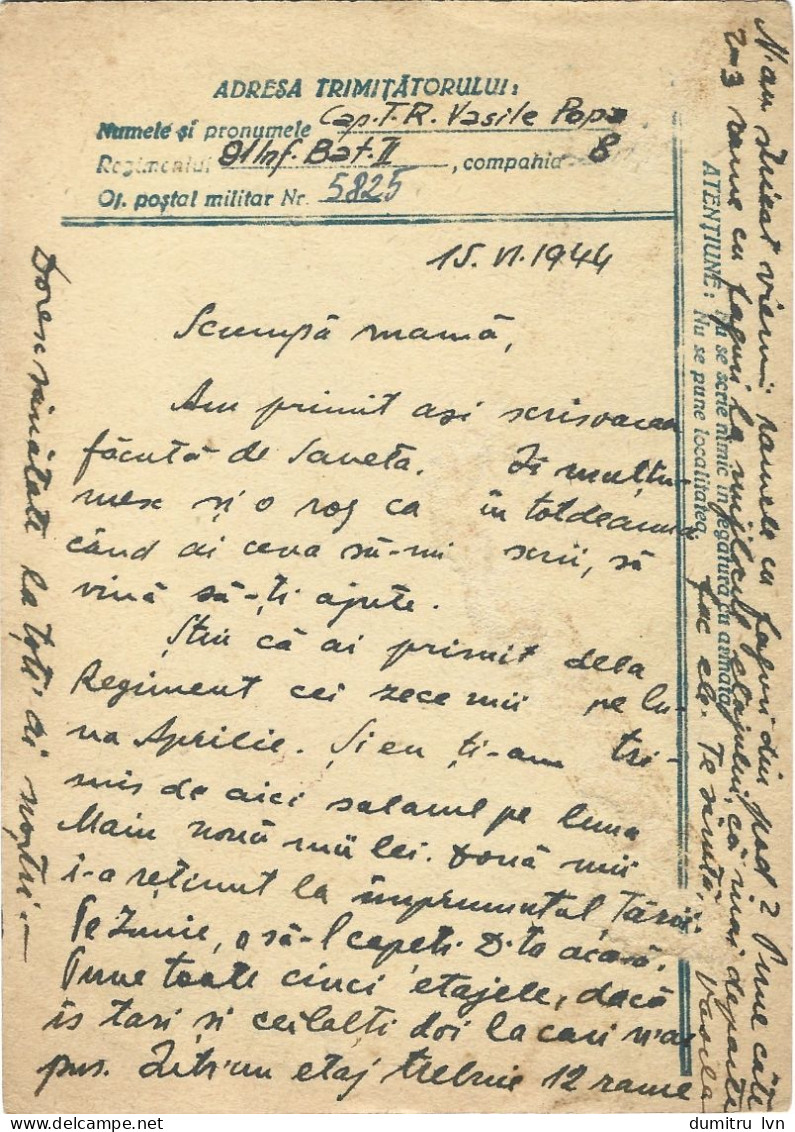 ADRESA TRIMIȚĂTORULUI:
Numele și pronumele Cap. T. R. Vasile Popa
Regimentul 91 Inf. Bat. II, compania 8
Of. poștal militar Nr. 5825
15. VI. 1944
Scumpă mamă,
Am primit azi scrisoarea
făcută de Saveta. Îi mulțu-
mesc și o rog ca în totdeauna,
când ai ceva să-mi scrii, să
vină să-ți ajute.
Știu că ai primit dela
Regiment cei zece mii pe lu-
na Aprilie. Și eu ți-am tri-
mis de aici salarul pe luna
Maiu nouă mii lei. Două mii
i-a reținut la împrumutul Țării.
Pe Iunie, o să-l capeti D-ta acasă.
Pune toate cinci etajele, dacă
is tari și ceilalți doi la cari n'ai
pus. Într'un etaj trebuie 12 rame
N'au stricat viermii ramele cu faguri din pod? Pune câte
2-3 rame cu faguri la mijlocul etajului, că mai departe
fac ele. Te sărută, Vasile
ATENȚIUNE: Nu se scrie nimic în legătură cu armata
Nu se pune localitatea
Doresc sănătate la toți ai noștri.-
dumitru lvn